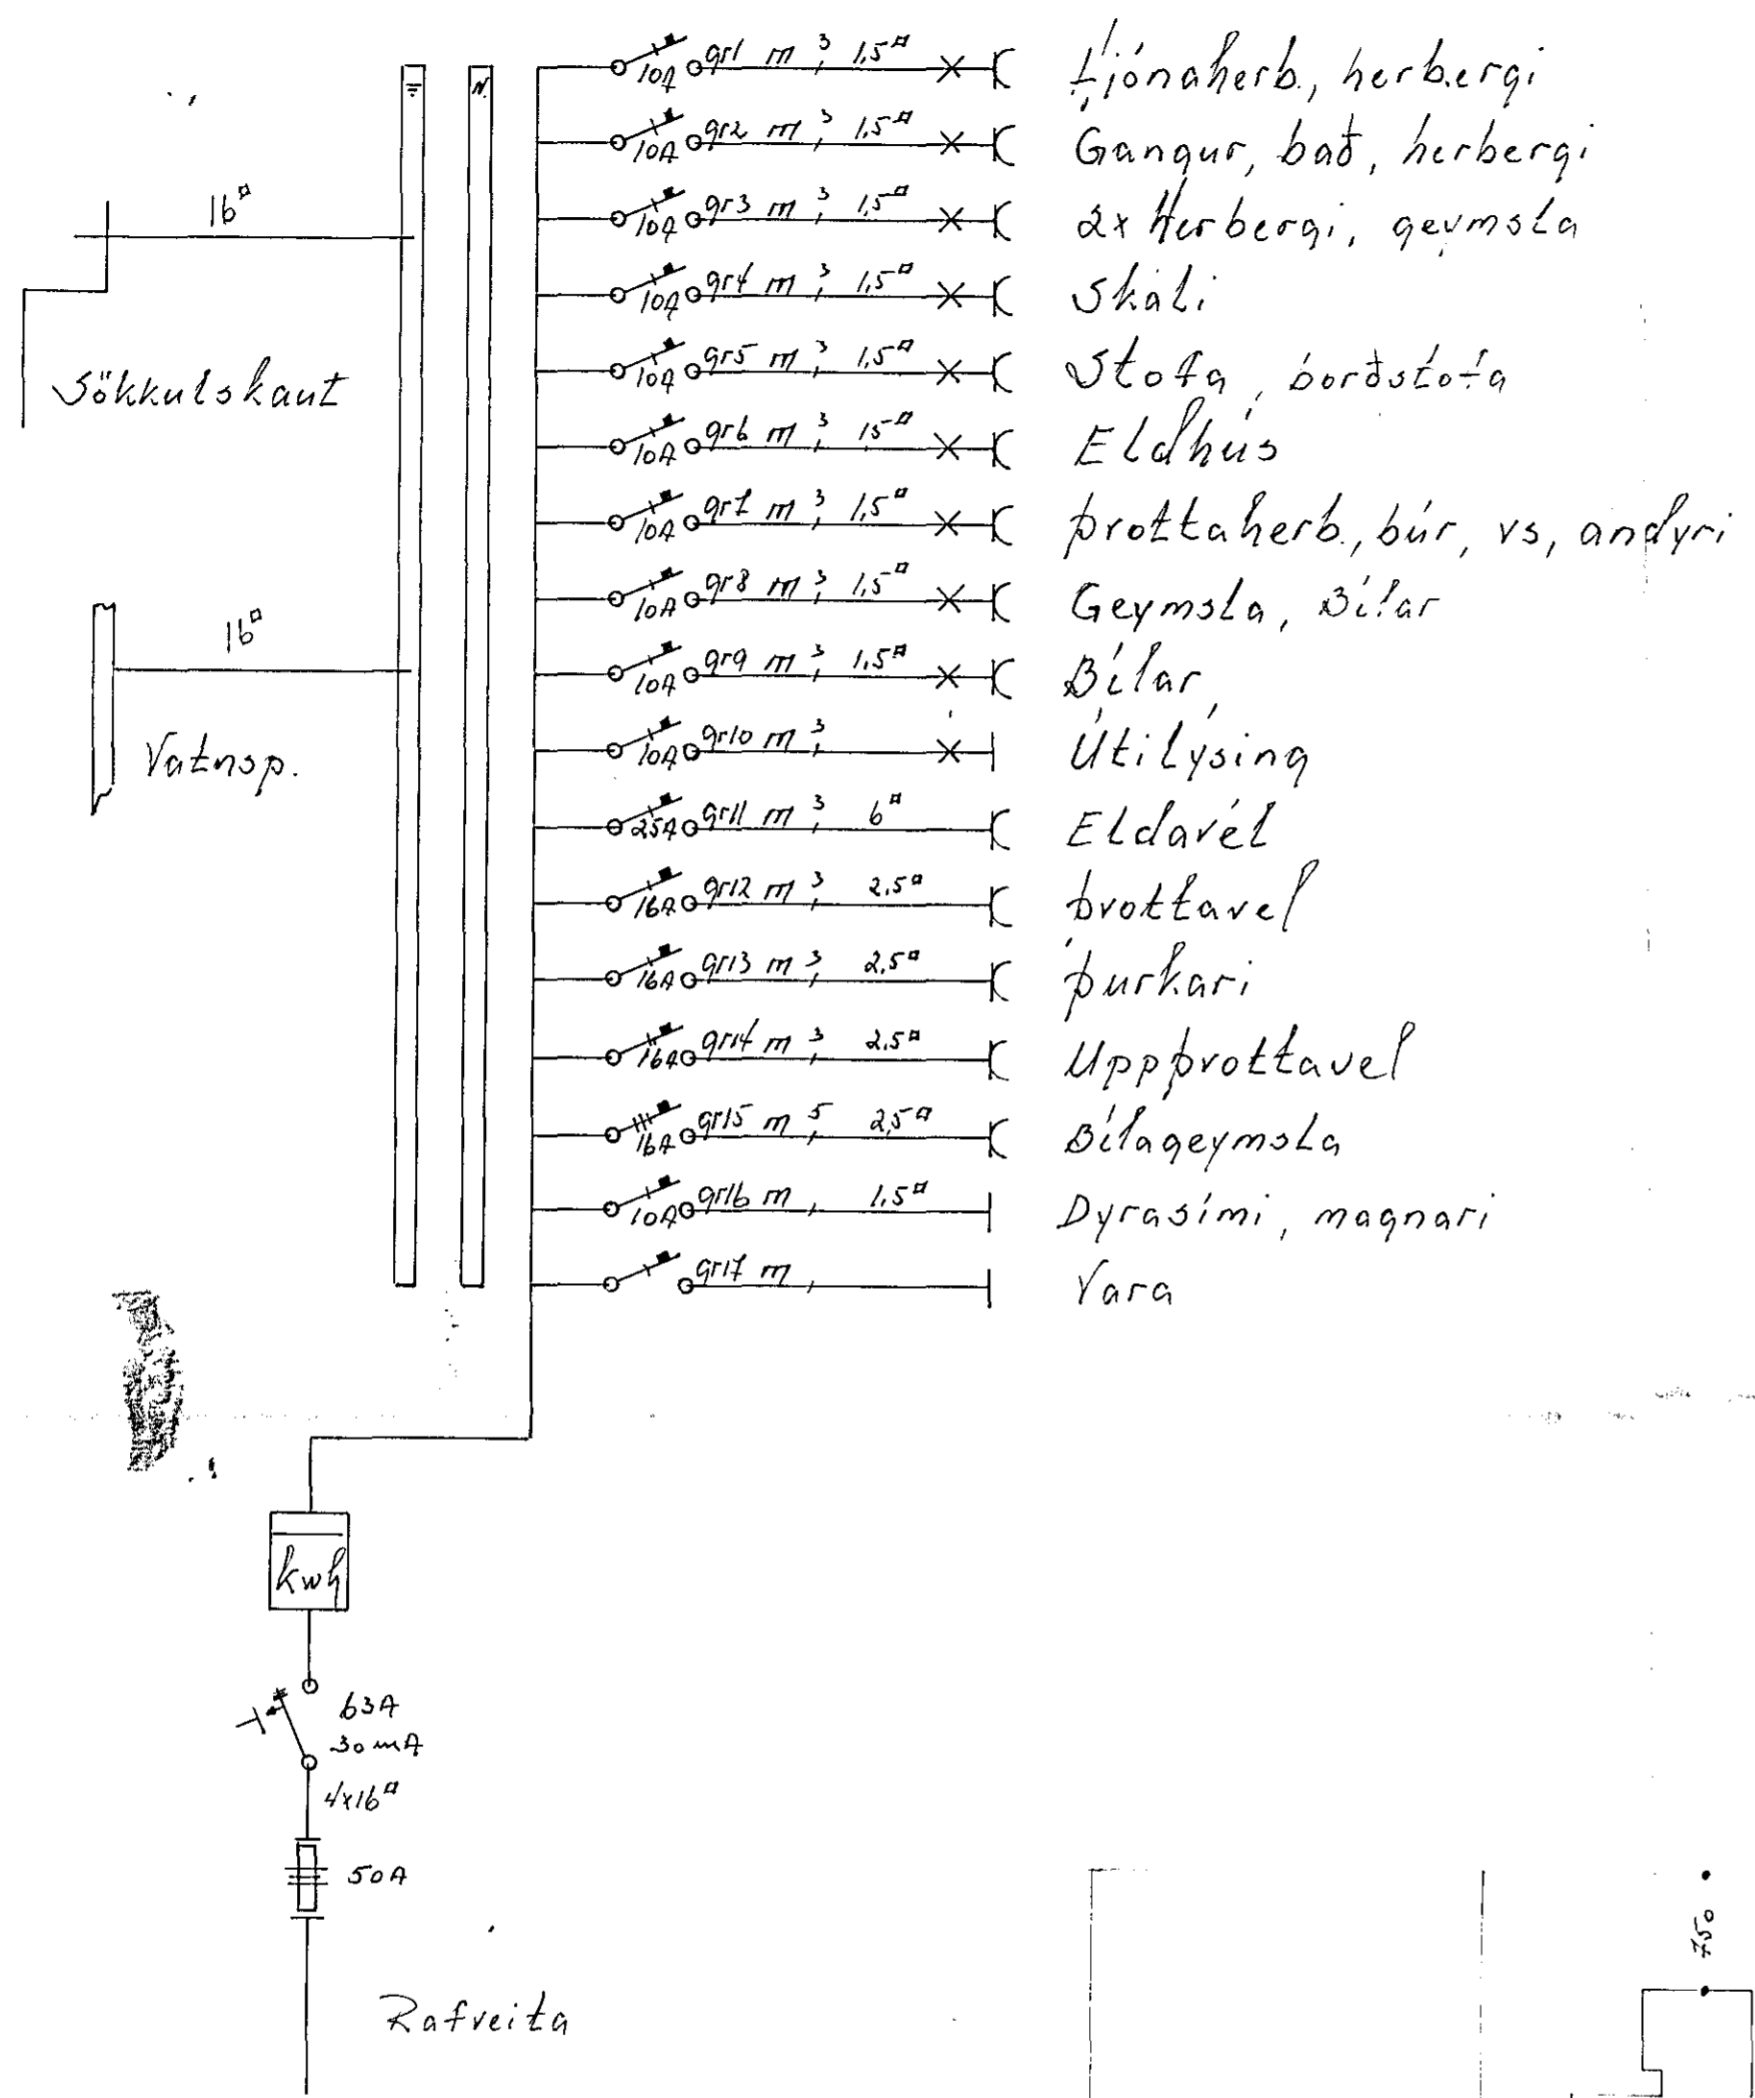 10A gr1 m 3 1,5¤ Hjónaherb., herbergi
10A gr2 m 3 1,5¤ Gangur, bað, herbergi
10A gr3 m 3 1,5¤ 2x Herbergi, geymsla
10A gr4 m 3 1,5¤ Skáli
10A gr5 m 3 1,5¤ Stofa, borðstofa
10A gr6 m 3 1,5¤ Eldhús
10A gr7 m 3 1,5¤ þvottaherb., búr, vs, andyri
10A gr8 m 3 1,5¤ Geymsla, Bílar
10A gr9 m 3 1,5¤ Bílar
10A gr10 m 3 Útilýsing
25A gr11 m 3 6¤ Eldavél
16A gr12 m 3 2,5¤ þvottavel
16A gr13 m 3 2,5¤ þurkari
16A gr14 m 3 2,5¤ Uppþvottavel
16A gr15 m 5 2,5¤ Bílageymsla
10A gr16 m 1,5¤ Dyrasími, magnari
gr17 m Vara
N
16¤
Sökkulskaut
16¤
Vatnsp.
kwh
63A
30mA
4x16¤
50A
Rafveita
750